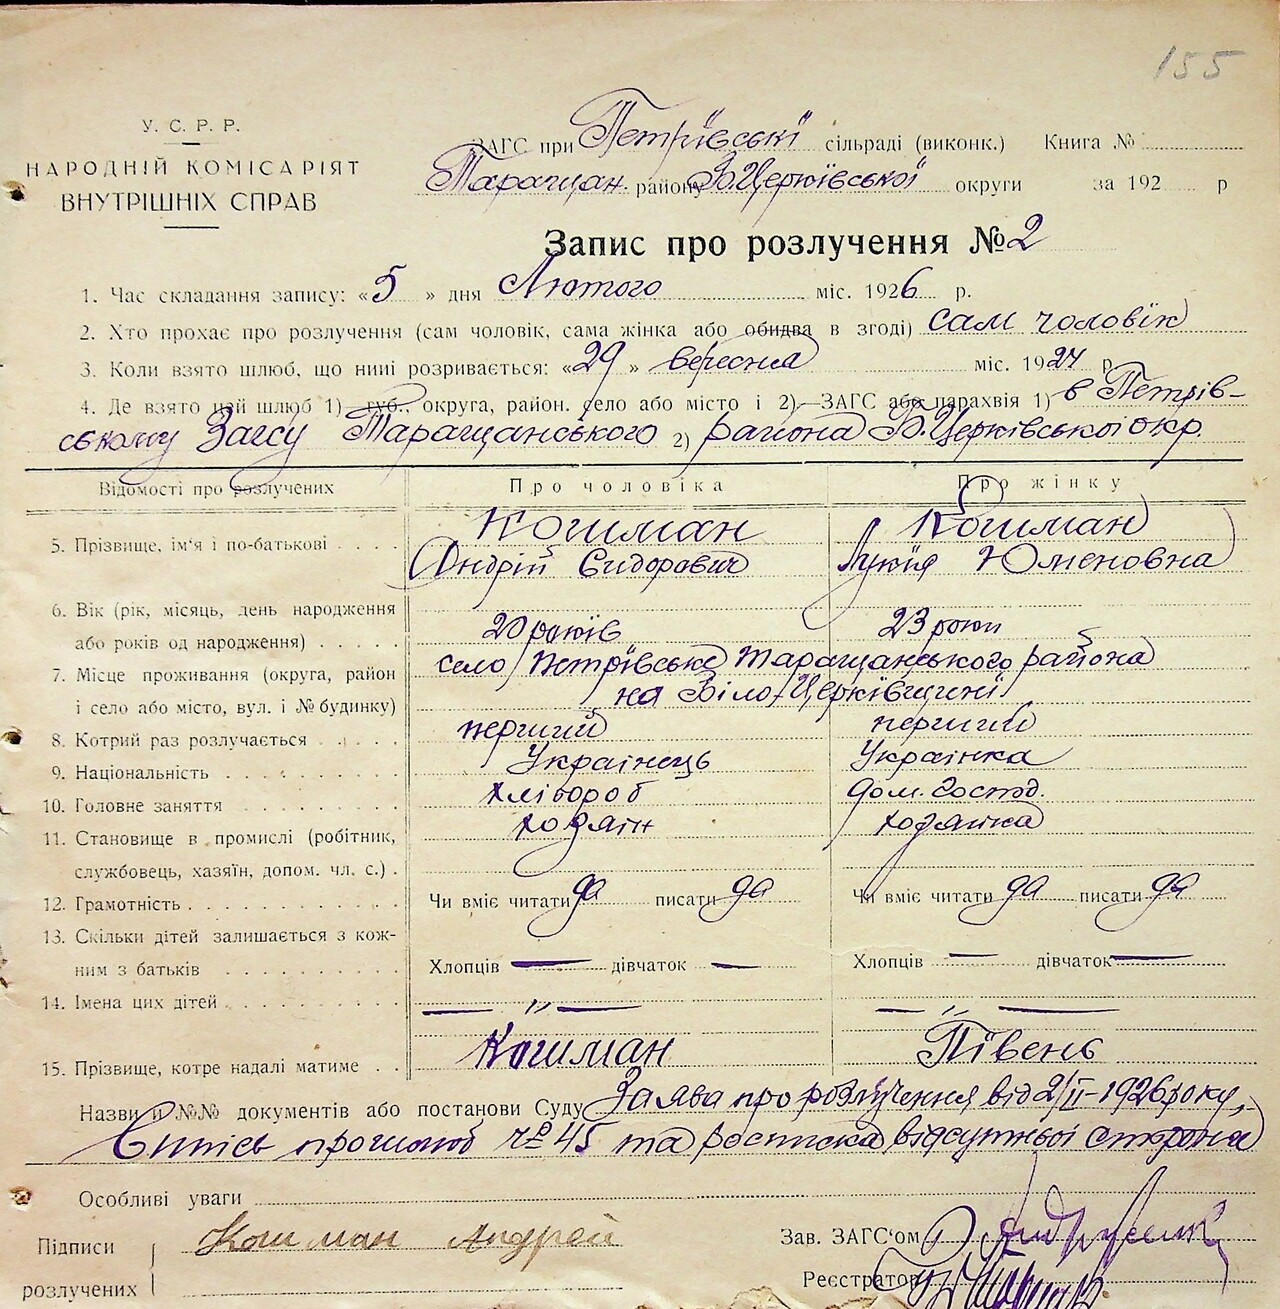 155
У. С. Р. Р.
НАРОДНІЙ КОМІСАРІЯТ
ВНУТРІШНІХ СПРАВ
ЗАГС при Петрівські сільраді (виконк.) Книга №
Таращан. району Б.Церківської округи за 192 р
Запис про розлучення № 2
1. Час складання запису: « 5 » дня Лютого міс. 1926 р.
2. Хто прохає про розлучення (сам чоловік, сама жінка або обидва в згоді) сам чоловік
3. Коли взято шлюб, що нині розривається: « 29 » вересня міс. 1924 р
4. Де взято цей шлюб 1) губ., округа, район. село або місто і 2) ЗАГС або парахвія 1) в Петрів-
ському Загсу Таращанського 2) района Б.Церківської окр.
Відомості про розлучених Про чоловіка Про жінку
5. Прізвище, ім'я і по-батькові Кошман Кошман
Андрій Сидорович Лукія Юменовна
6. Вік (рік, місяць, день народження
або років од народження) 20 років 23 роки
7. Місце проживання (округа, район село Петрівське Таращанського района
і село або місто, вул. і № будинку) на Біло-Церківщині
8. Котрий раз розлучається перший перший
9. Національність Українець Українка
10. Головне заняття хлібороб дом. господ.
11. Становище в промислі (робітник, хозяін хозяйка
службовець, хазяїн, допом. чл. с.)
12. Грамотність Чи вміє читати да писати да Чи вміє читати да писати да
13. Скільки дітей залишається з кож-
ним з батьків Хлопців — дівчаток — Хлопців — дівчаток —
14. Імена цих дітей — „ — — „ —
15. Прізвище, котре надалі матиме Кошман Півень
Назви и №№ документів або постанови Суду Заява про розлучення від 2/II-1926 року,
Випись про шлюб № 45 та росписка відсутньої сторони
Особливі уваги
Підписи Кошман Андрей Зав. ЗАГС'ом
розлучених Реєстратор